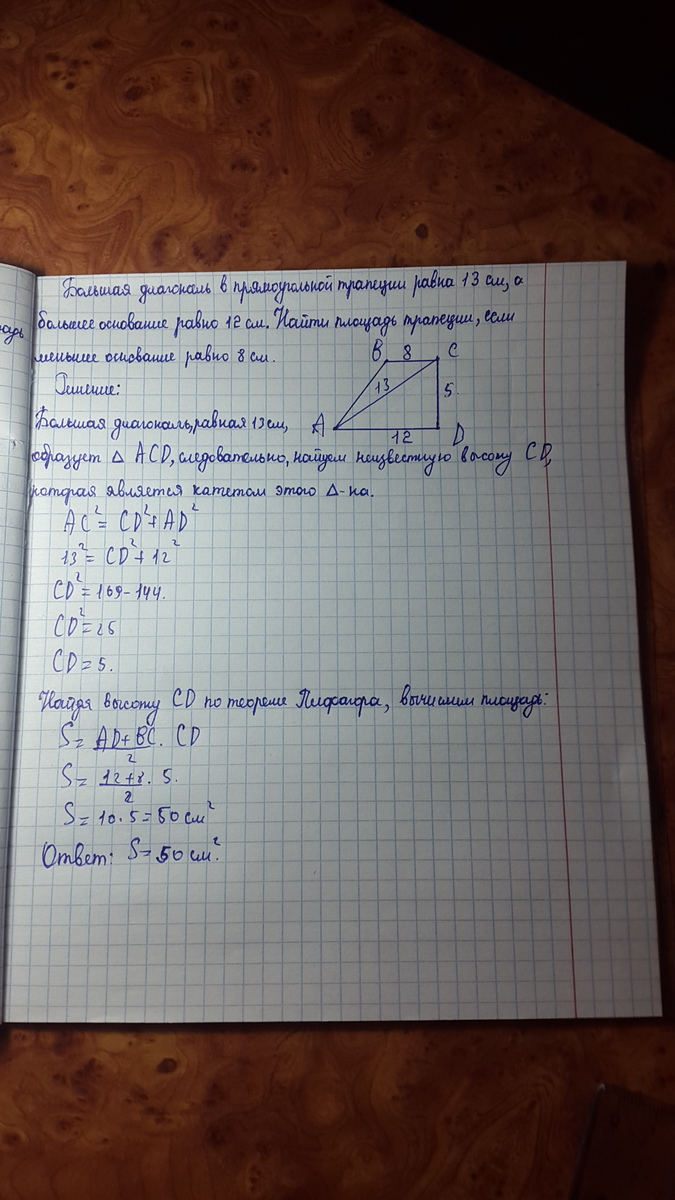 адь
Большая диагональ в прямоугольной трапеции равна 13 см, а
большее основание равно 12 см. Найти площадь трапеции, если
меньшее основание равно 8 см.
B 8 C
Решение:
13 5
Большая диагональ, равная 13 см,
A 12 D
образует Δ ACD, следовательно, найдем неизвестную высоту CD,
которая является катетом этого Δ-ка.
AC² = CD² + AD²
13² = CD² + 12²
CD² = 169 - 144.
CD² = 25
CD = 5.
Найдя высоту CD по теореме Пифагора, вычислим площадь:
S = AD + BC / 2 · CD
S = 12 + 8 / 2 · 5.
S = 10 · 5 = 50 см²
Ответ: S = 50 см².